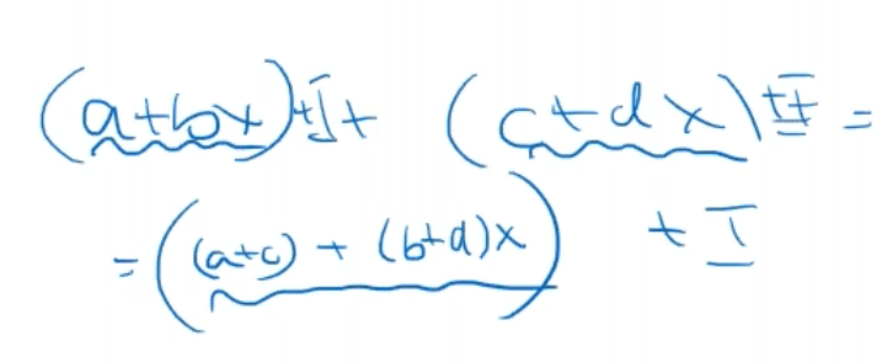 (a+bx)+I + (c+dx)+I =
= ((a+c) + (b+d)x) + I